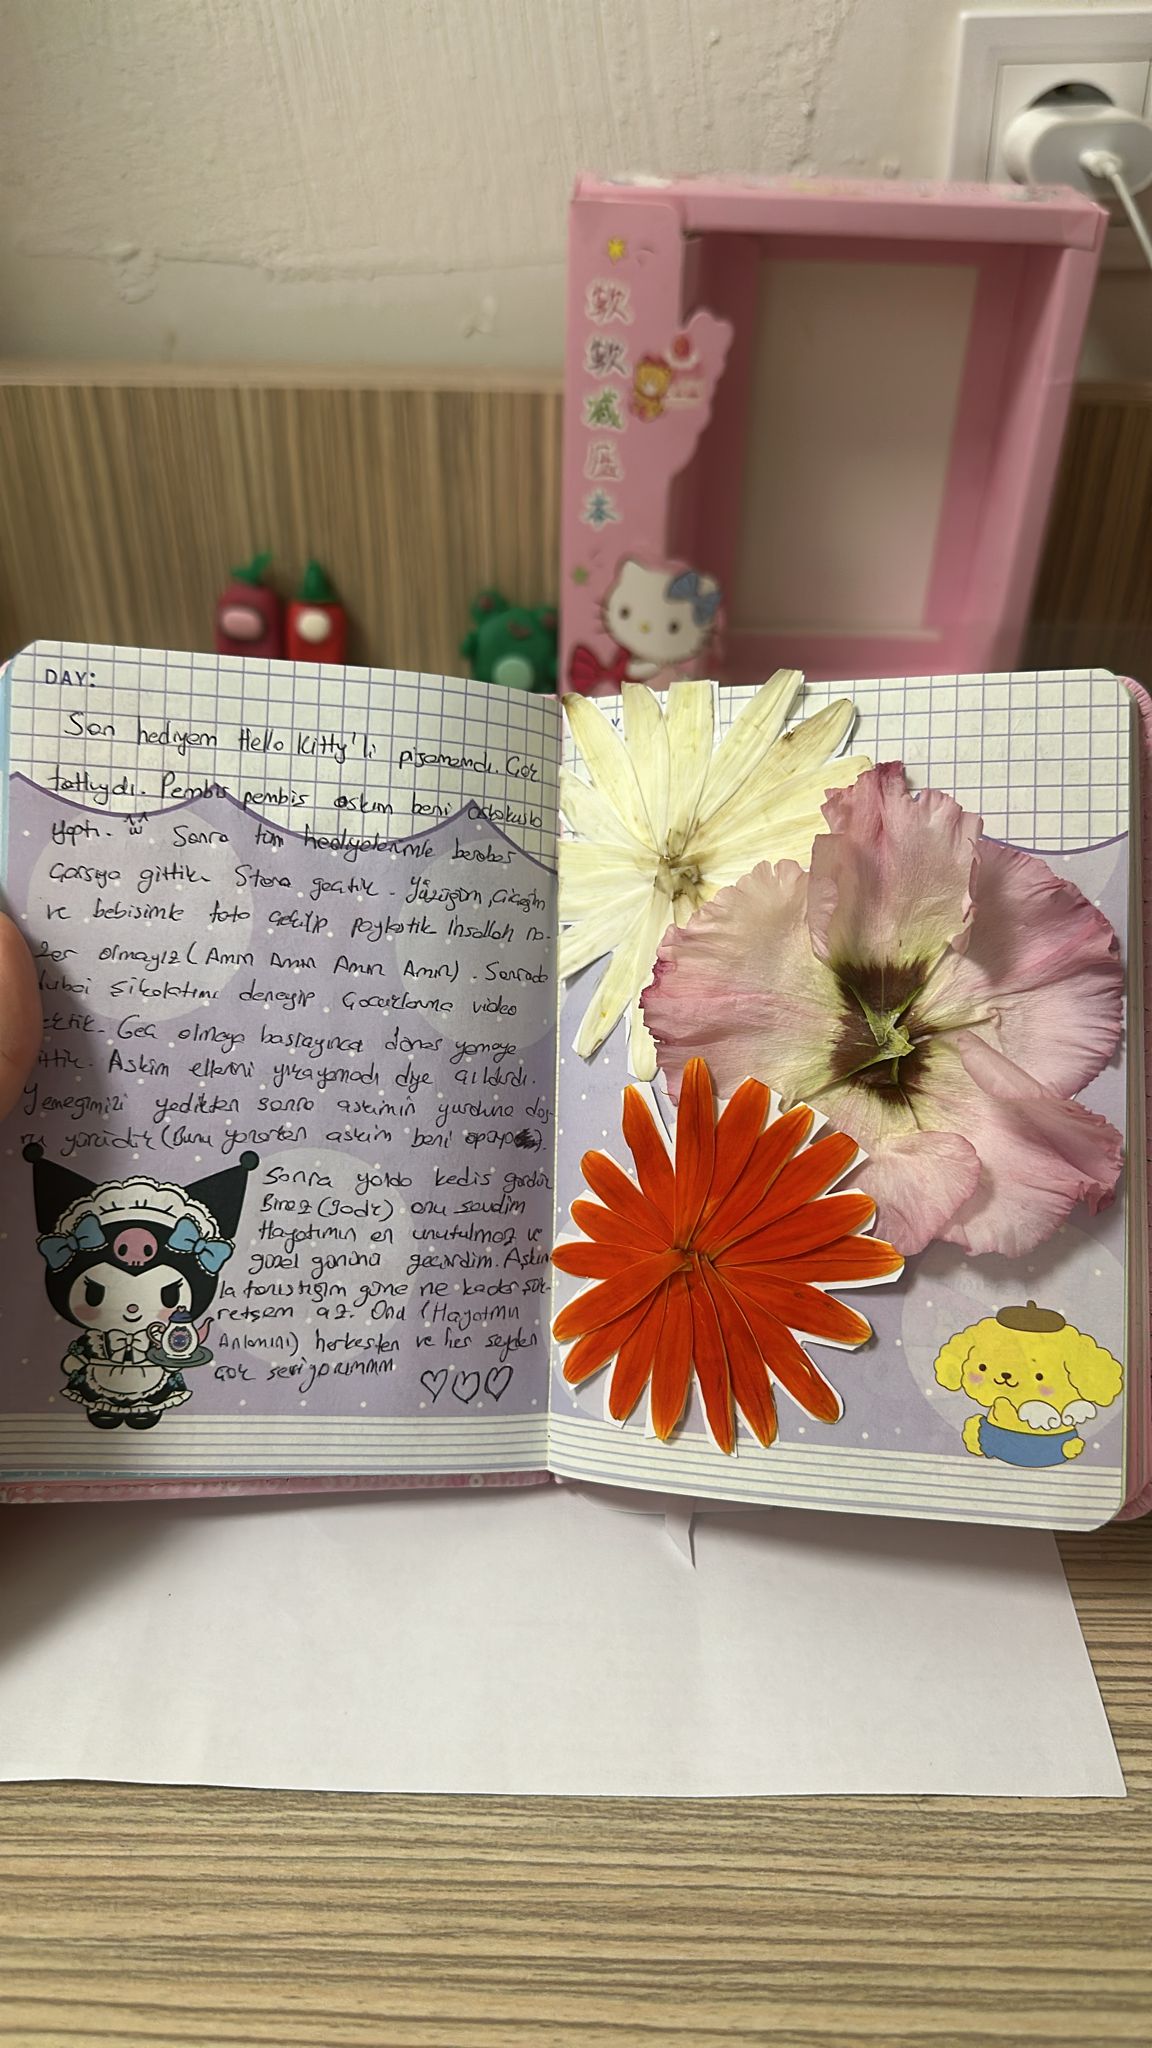 软
软
减
压
本
DAY:
Son hediyem Hello Kitty'li pijamamdı. Çok
tatlıydı. Pembiş pembiş aşkım beni aşkokuşu
yaptı. ^w^ Sonra tüm hediyelerimle beraber
Çarşıya gittik. Stora geçtik. Yüzüğüm, Çiçeğim
ve bebişimle foto çekilip paylaştık İnşallah na-
zar olmayız (Amin Amin Amin Amin). Sonrada
dubai çikolatını deneyip Çocuklarıma video
çektik. Geç olmaya başlayınca döner yemeye
gittik. Aşkım ellerini yıkayamadı diye çıldırdı.
Yemeğimizi yedikten sonra aşkımın yurduna doğ-
ru yürüdük (Bunu yazarken aşkım beni).
Sonra yolda kediş gördük
Biraz (çok) onu sevdim
Hayatımın en unutulmaz ve
güzel gününü geçirdim. Aşkım-
la tanıştığım güne ne kadar şük-
retsem az. Onu (Hayatımın
Anlamını) herkesten ve her şeyden
çok seviyorummm